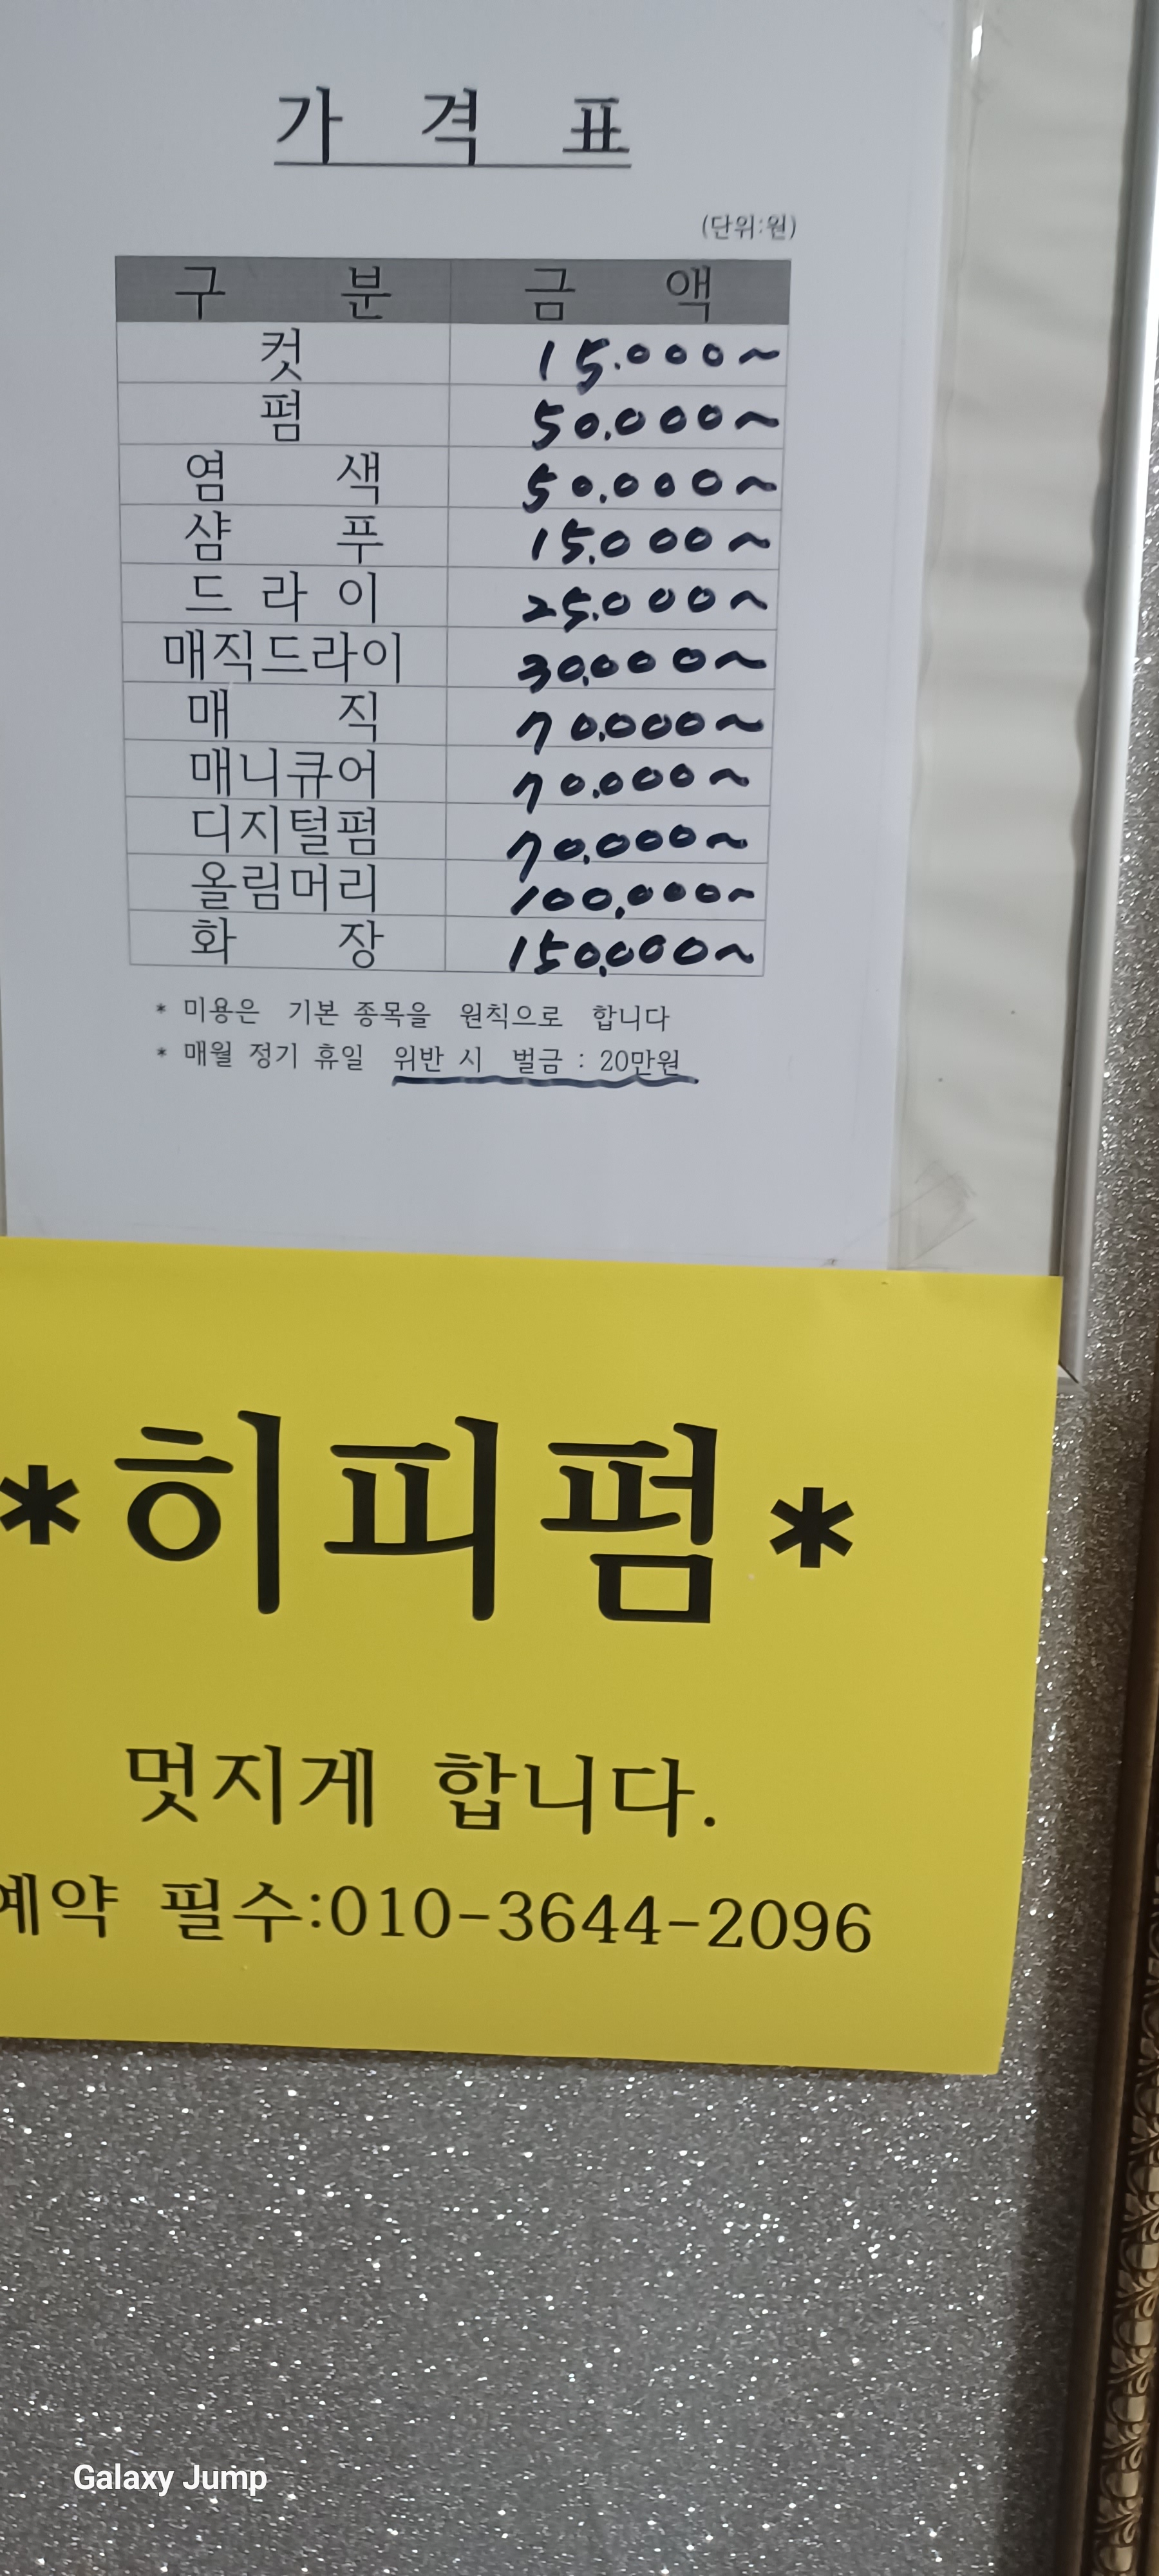 가 격 표
(단위:원)
구 분 금 액
컷 15.000~
펌 50.000~
염 색 50.000~
샴 푸 15.000~
드 라 이 25.000~
매직드라이 30.000~
매 직 70.000~
매니큐어 70.000~
디지털펌 70.000~
올림머리 100,000~
화 장 150,000~
* 미용은 기본 종목을 원칙으로 합니다
* 매월 정기 휴일 위반 시 벌금 : 20만원
*히피펌*
멋지게 합니다.
예약 필수:010-3644-2096
Galaxy Jump